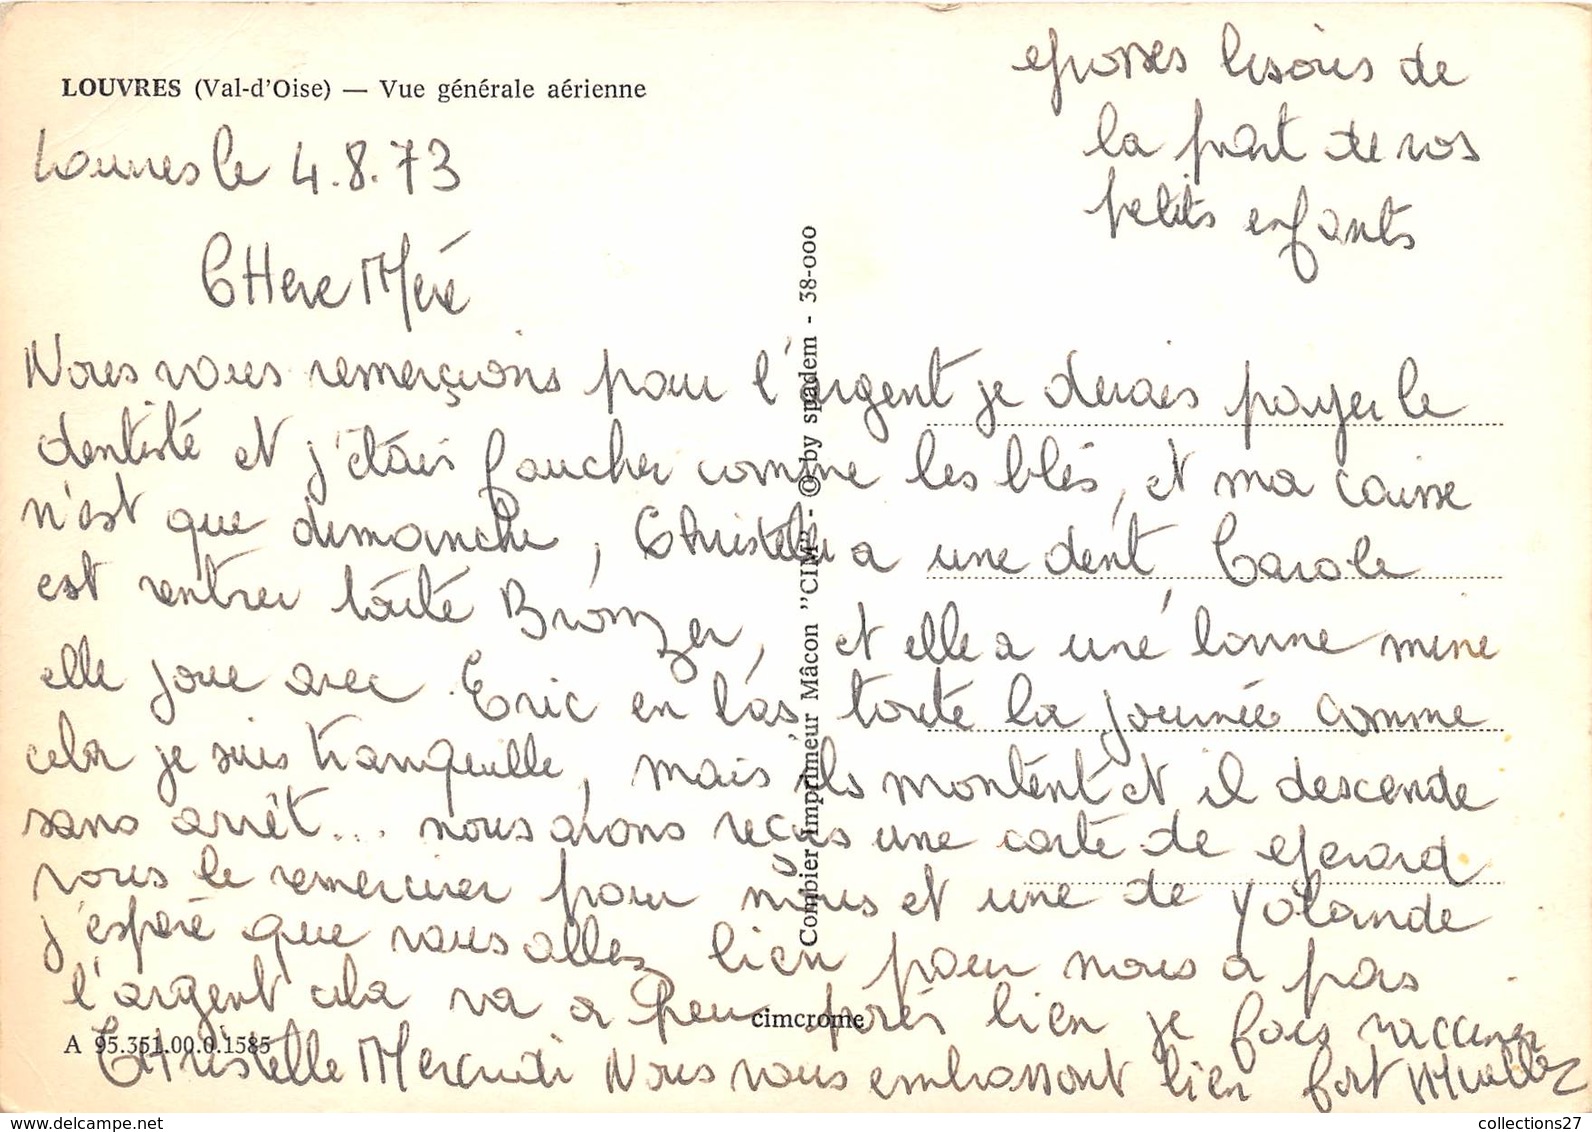 LOUVRES (Val-d'Oise) — Vue générale aérienne
Louvres le 4.8.73
CHere Meré
Nous vous remerçions pour l'argent je devais payer le
dentisté et j'étais faucher comme les blés, et ma caisse
n'est que dimanche, Christelle a une dent, Carole
est rentrer touté Bronzer, et elle a une bonne mine
elle joue avec Eric en bas toute la journée comme
cela je suis tranquille, mais ils montent et il descende
sans arrêt... nous avons reçus une carte de Gerard
vous le remercier pour nous et une de Yolande
j'esperé que vous allez bien pour nous a pas
l'argent cela va a Peu près bien je fais vacciner
CHristelle Mercredi Nous vous embrassont bien fort
grosses bisous de
la part de vos
petits enfants
Combier Imprimeur Mâcon "CIM" - © by spadem - 38-000
cimcrome
A 95.351.00.0.1585
collections27